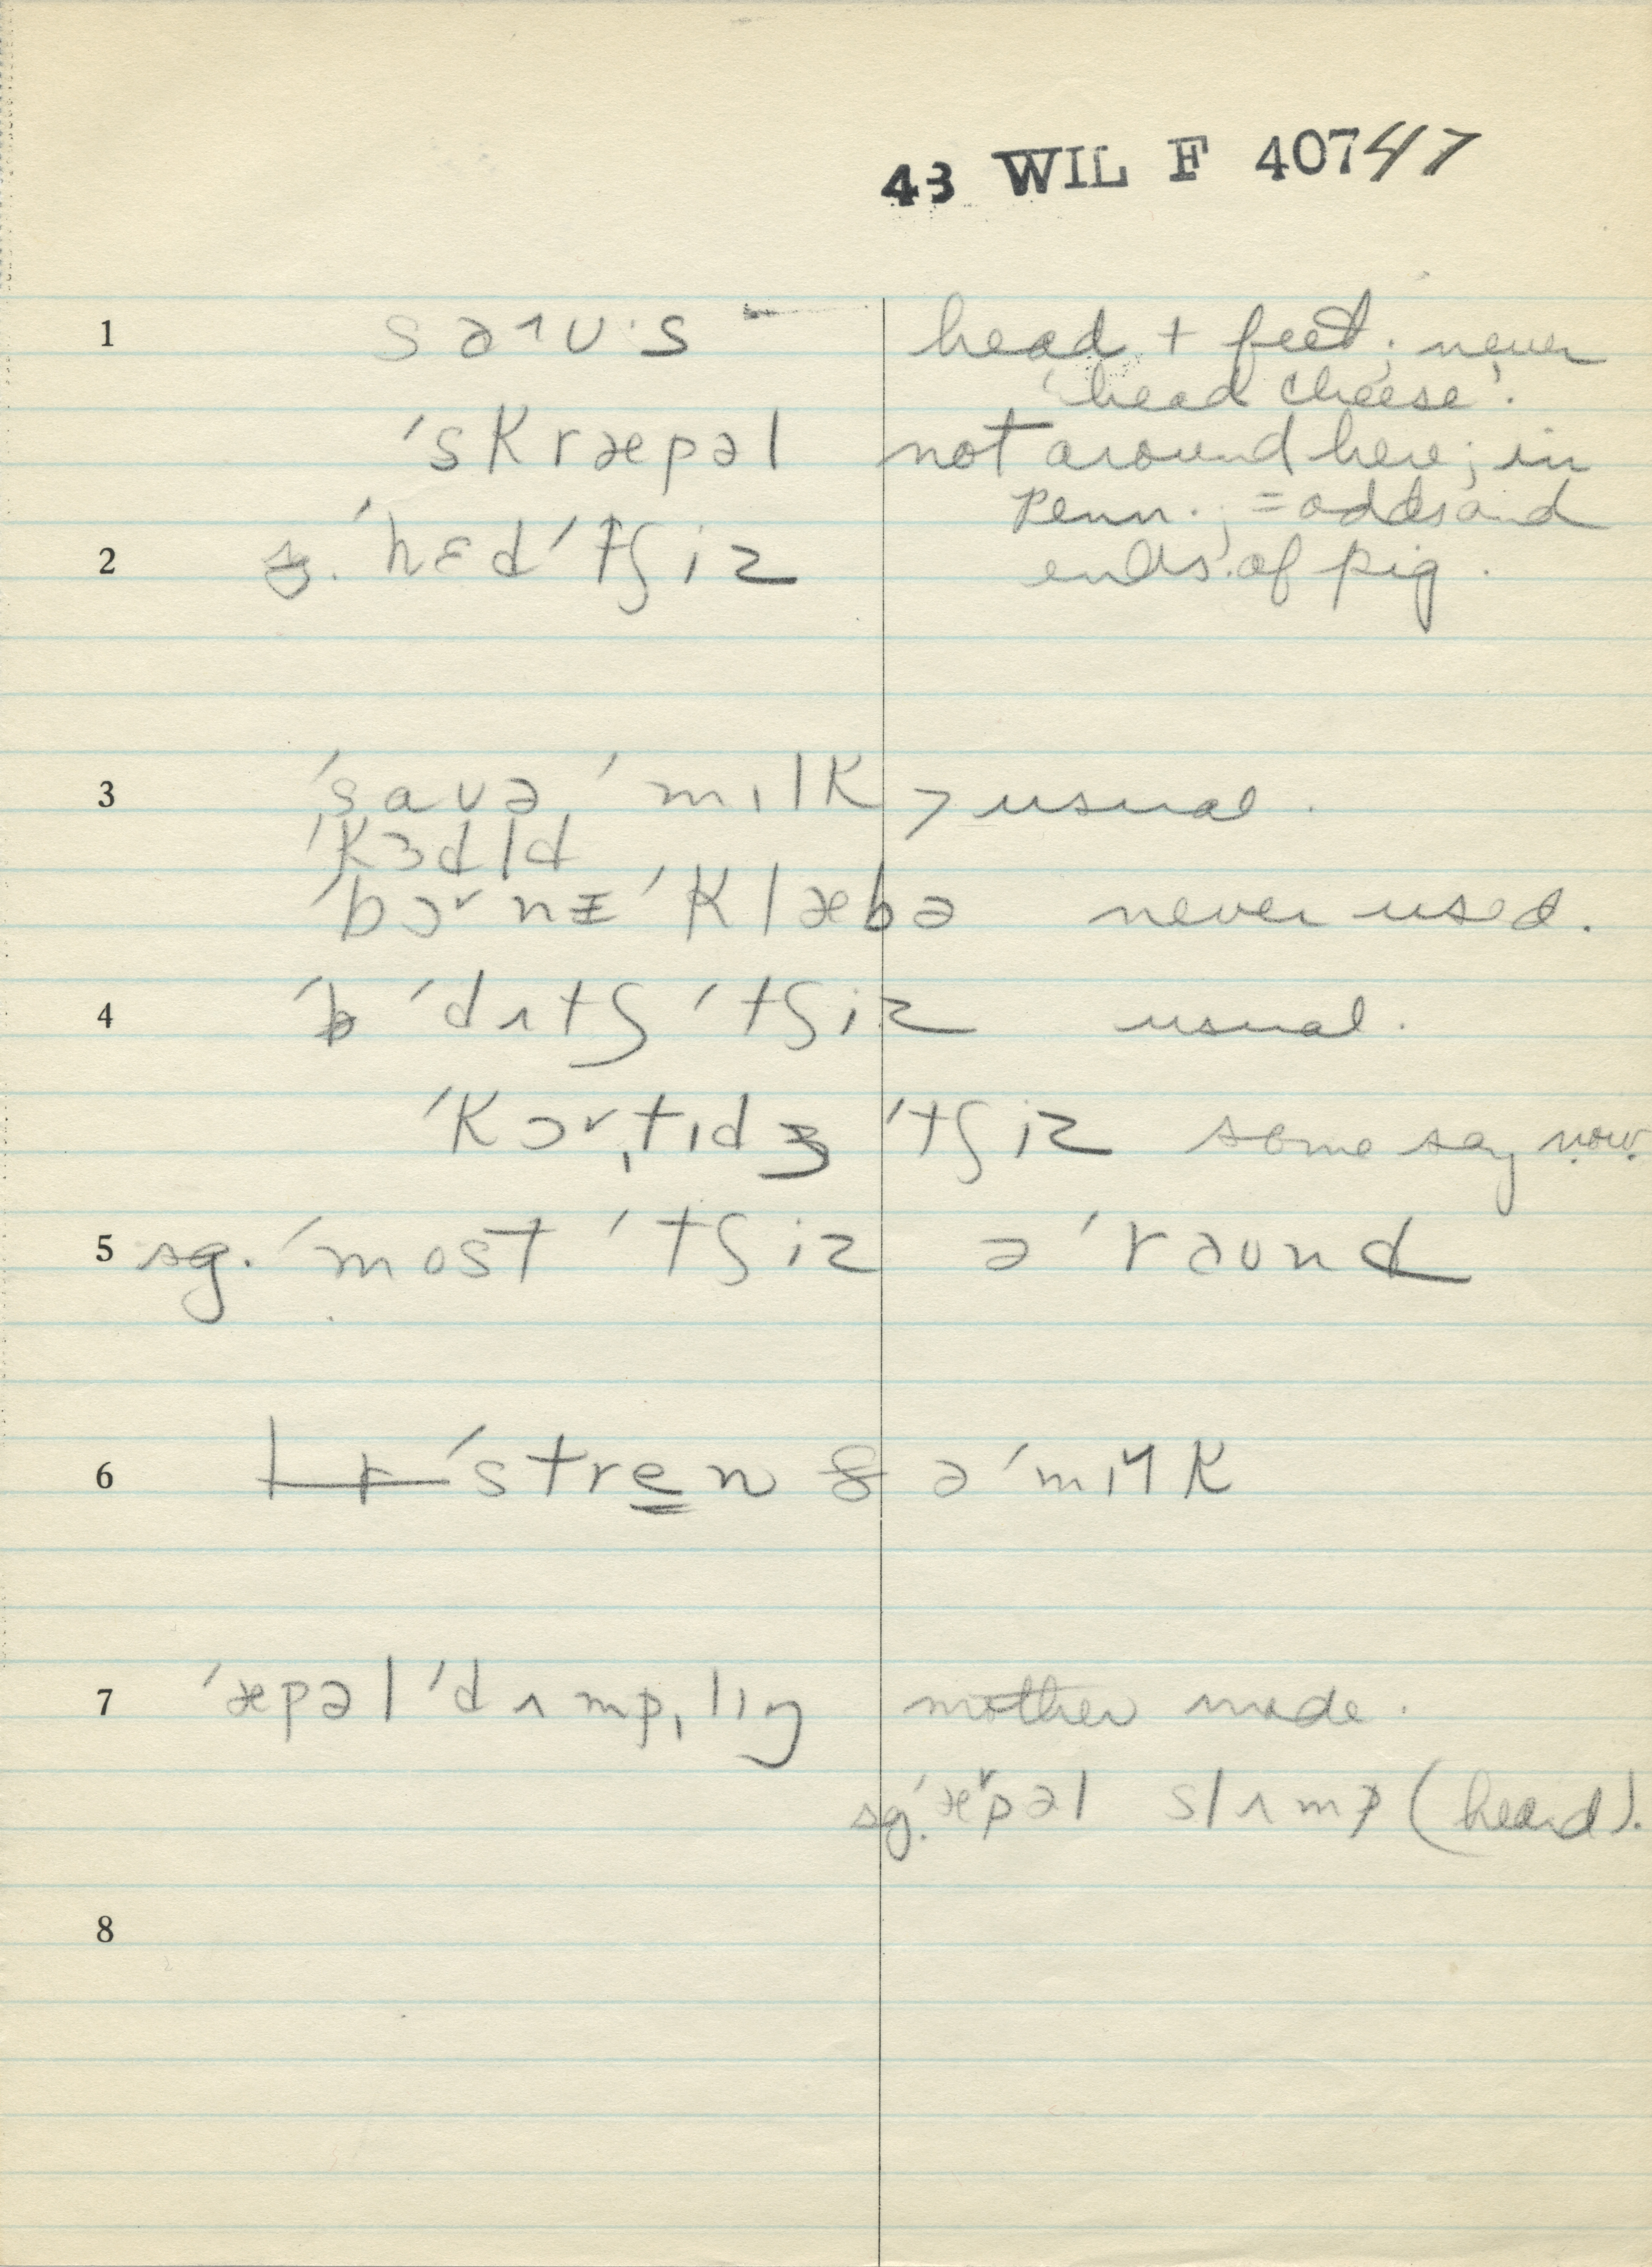 43 WIL F 40747
1 saʌʊ·s head + feet; never
'head cheese'.
ˈskræpəl not around here; in
Penn.; = odds and
2 ˈhɛdˈtʃiz ends of pig.
3 ˈsaʊə ˈmɪlk > usual.
ˈkɜdld
ˈbɔrnɪ ˈklæbə never used.
4 ˈdʌtʃ ˈtʃiz usual.
ˈkɔrˌtɪdʒ ˈtʃiz some say now.
5 sg. ˈmost ˈtʃiz əˈraʊnd
6 ˈstren ə ˈmɪlk
7 ˈæpəl ˈdʌmpˌlɪŋ mother made.
sg. ˈæpəl slʌmp (heard).
8